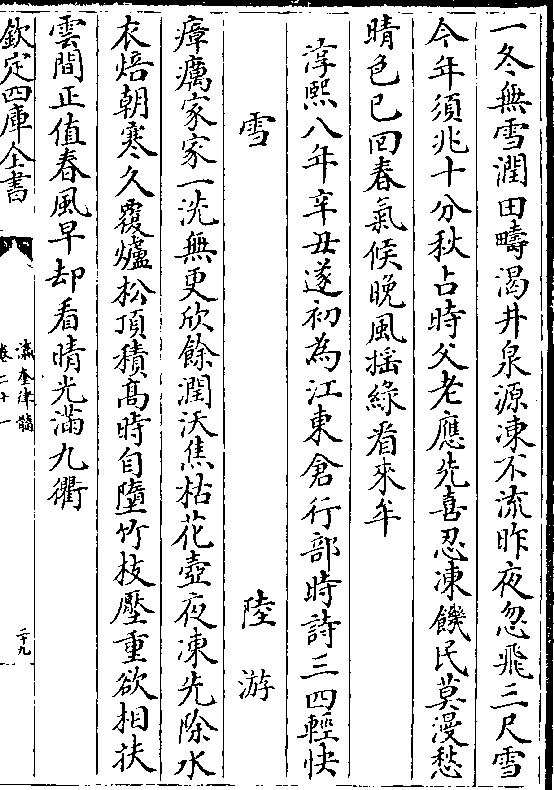 一冬無雪潤田疇渇井泉源凍不流昨夜忽飛三尺雪
今年須兆十分秋占時父老應先喜忍凍饑民莫漫愁
晴色已回春氣候晚風揺綠看來牟
淳熙八年辛丑遂初為江東倉行部時詩三四輕快
雪　陸游
瘴癘家家一洗無更欣餘潤沃焦枯花壺夜凍先除水
衣焙朝寒久覆爐松頂積髙時自墮竹枝壓重欲相扶
雲間正值春風早却看晴光滿九衢
欽定四庫全書
瀛奎律髓
卷二十一
二十九